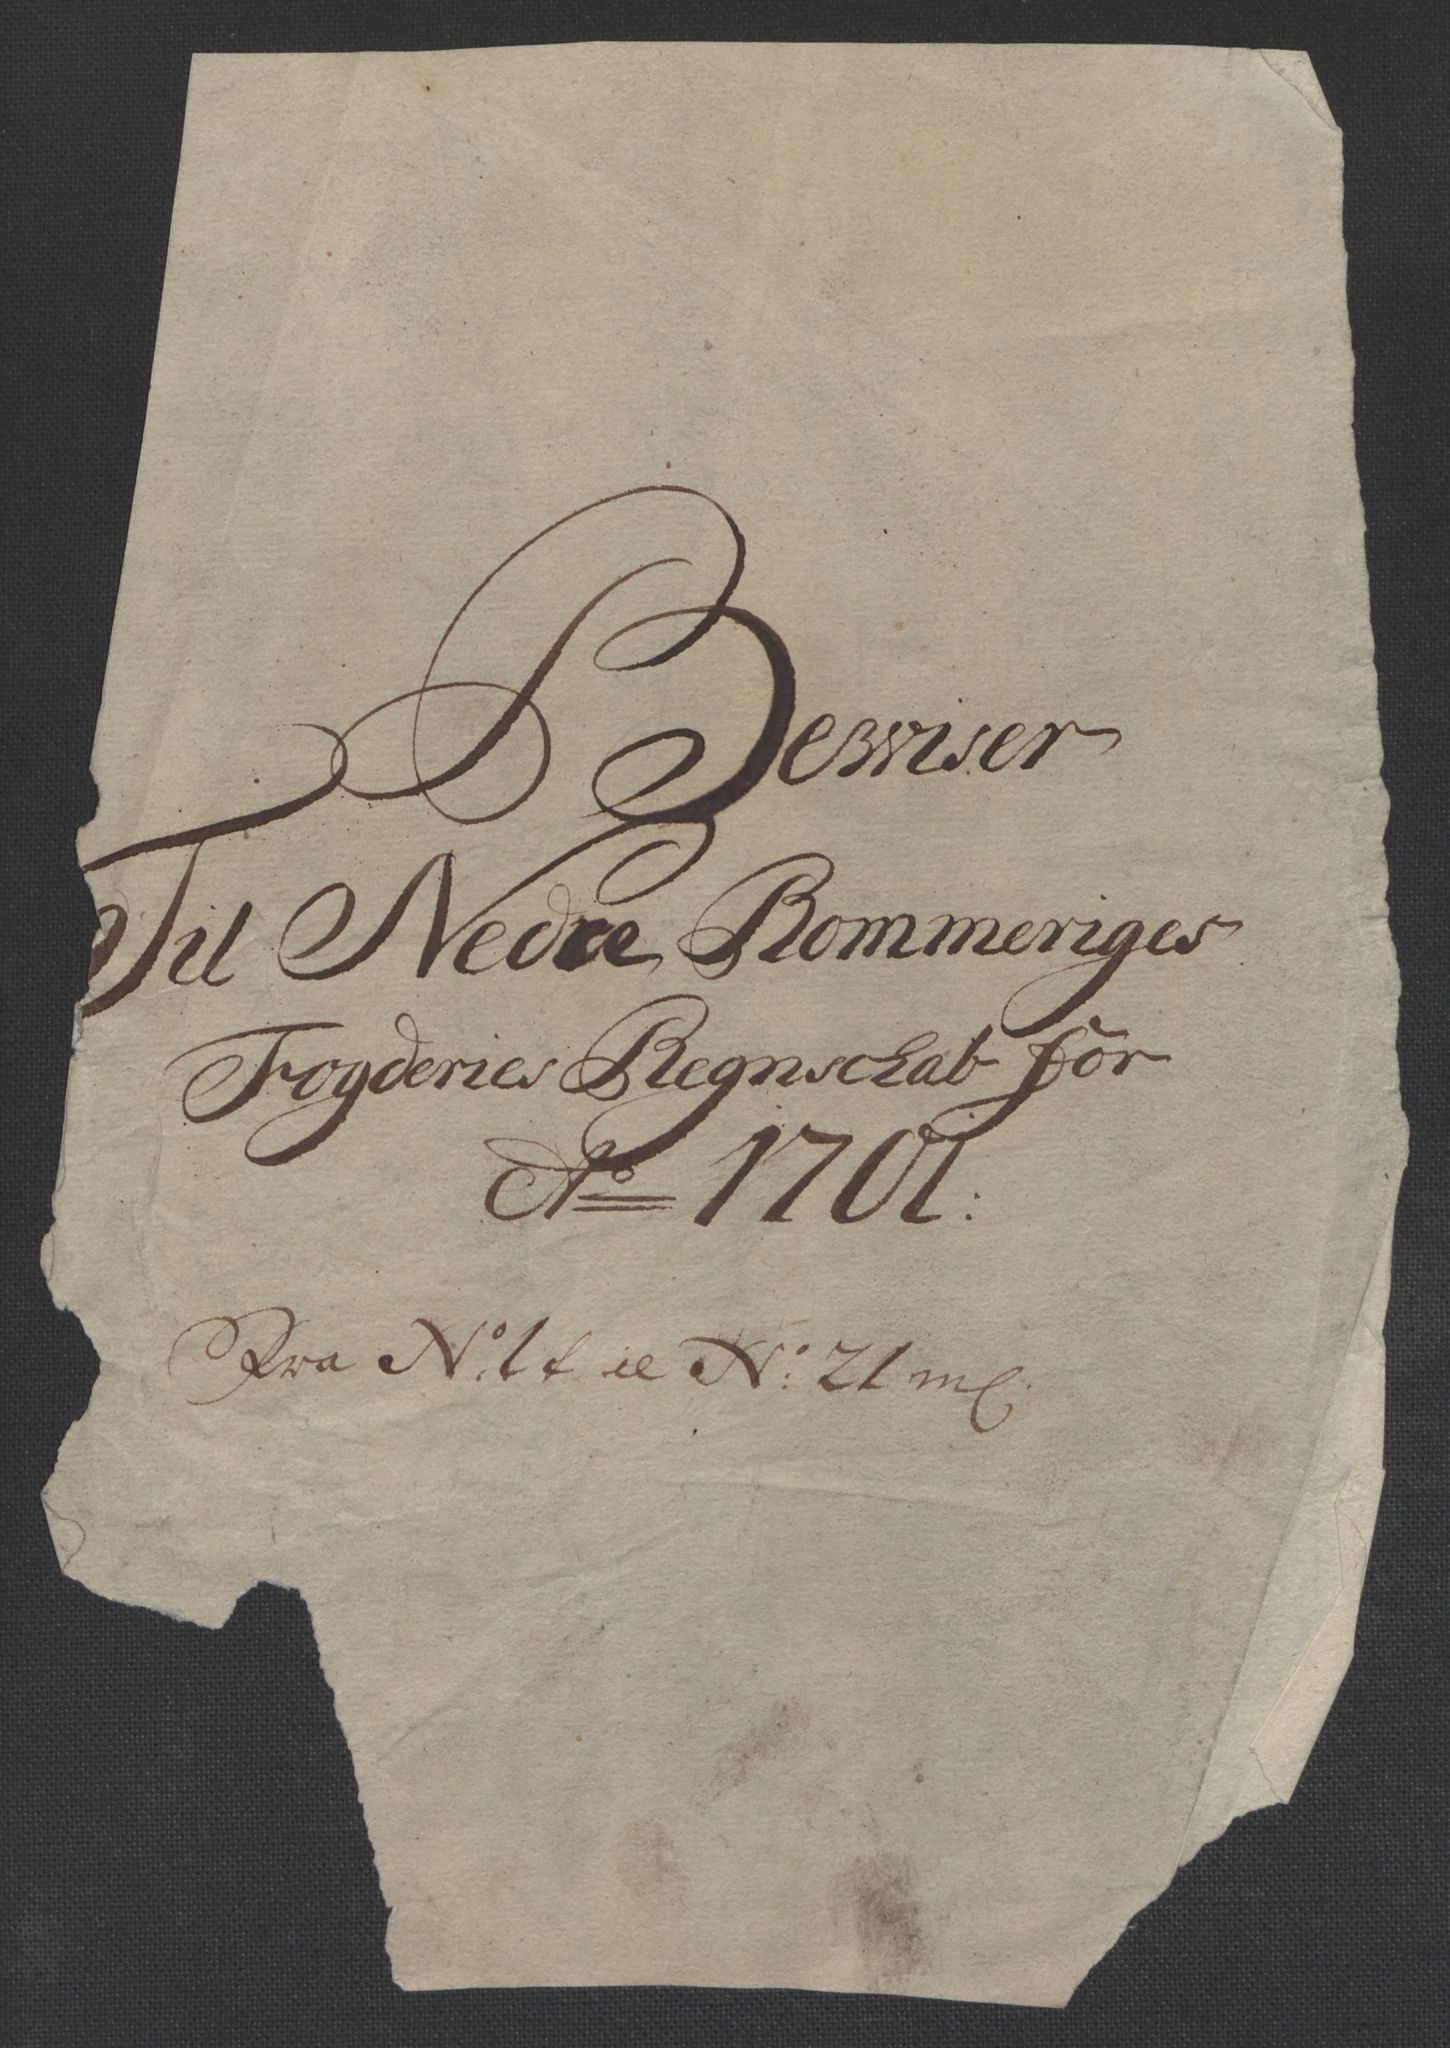 Bewiser
Til Nedre Rommeriges
Fogderies Regnschab för
Ao 1701:
Fra No: 1 til No: 21 incl.